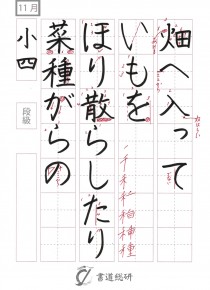 11月
畑へ入って
いもを
ほり散らしたり
菜種がらの
小四
段級
千 禾 和 秱 種
書道総研